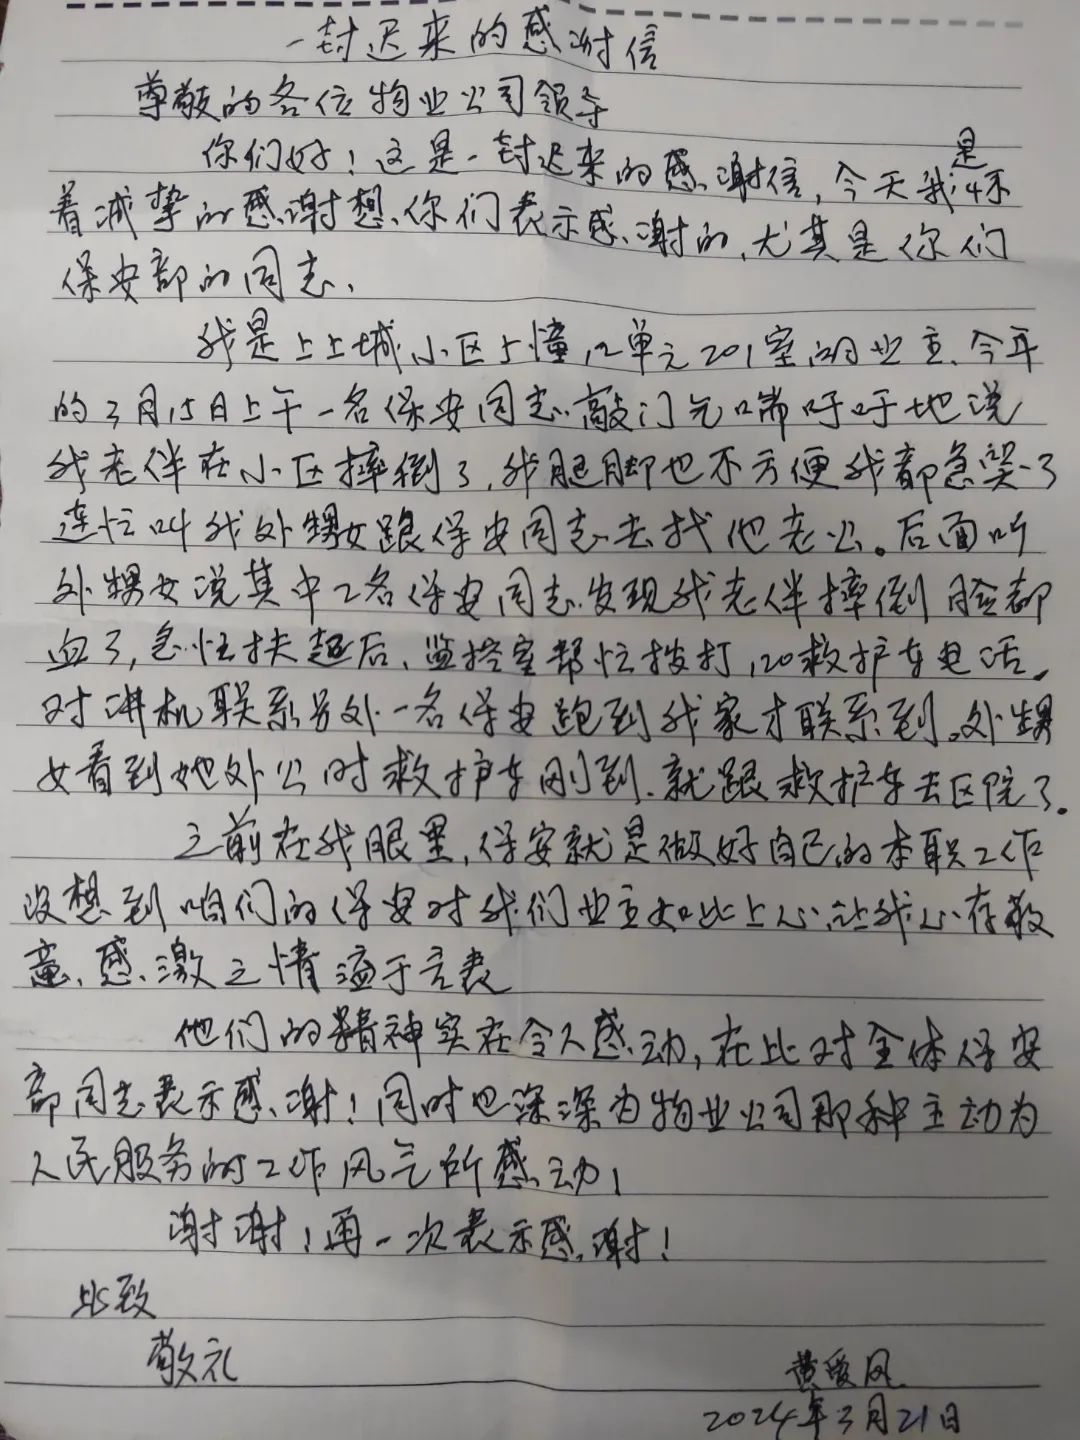 一封迟来的感谢信
尊敬的各位物业公司领导
你们好！这是一封迟来的感谢信，今天我是怀
着诚挚的感谢想你们表示感谢的，尤其是你们
保安部的同志、
我是上上城小区5幢12单元201室的业主、今年
的3月15日上午一名保安同志敲门气喘吁吁地说
我老伴在小区摔倒了，我腿脚也不方便我都急哭了
连忙叫我外甥女跟保安同志去找他老公。后面听
外甥女说其中2名保安同志发现我老伴摔倒脸都
血了，急忙扶起后、监控室帮忙拨打120救护车电话，
对讲机联系另外一名保安跑到我家才联系到。外甥
女看到她外公时救护车刚到.就跟救护车去医院了。
之前在我眼里，保安就是做好自己的本职工作
没想到咱们的保安对我们业主如此上心，让我心存敬
意、感激之情溢于言表
他们的精神实在令人感动，在此对全体保安
部同志表示感谢！同时也深深为物业公司那种主动为
人民服务的工作风气所感动！
谢谢！再一次表示感谢！
此致
敬礼
黄爱凤
2024年3月21日